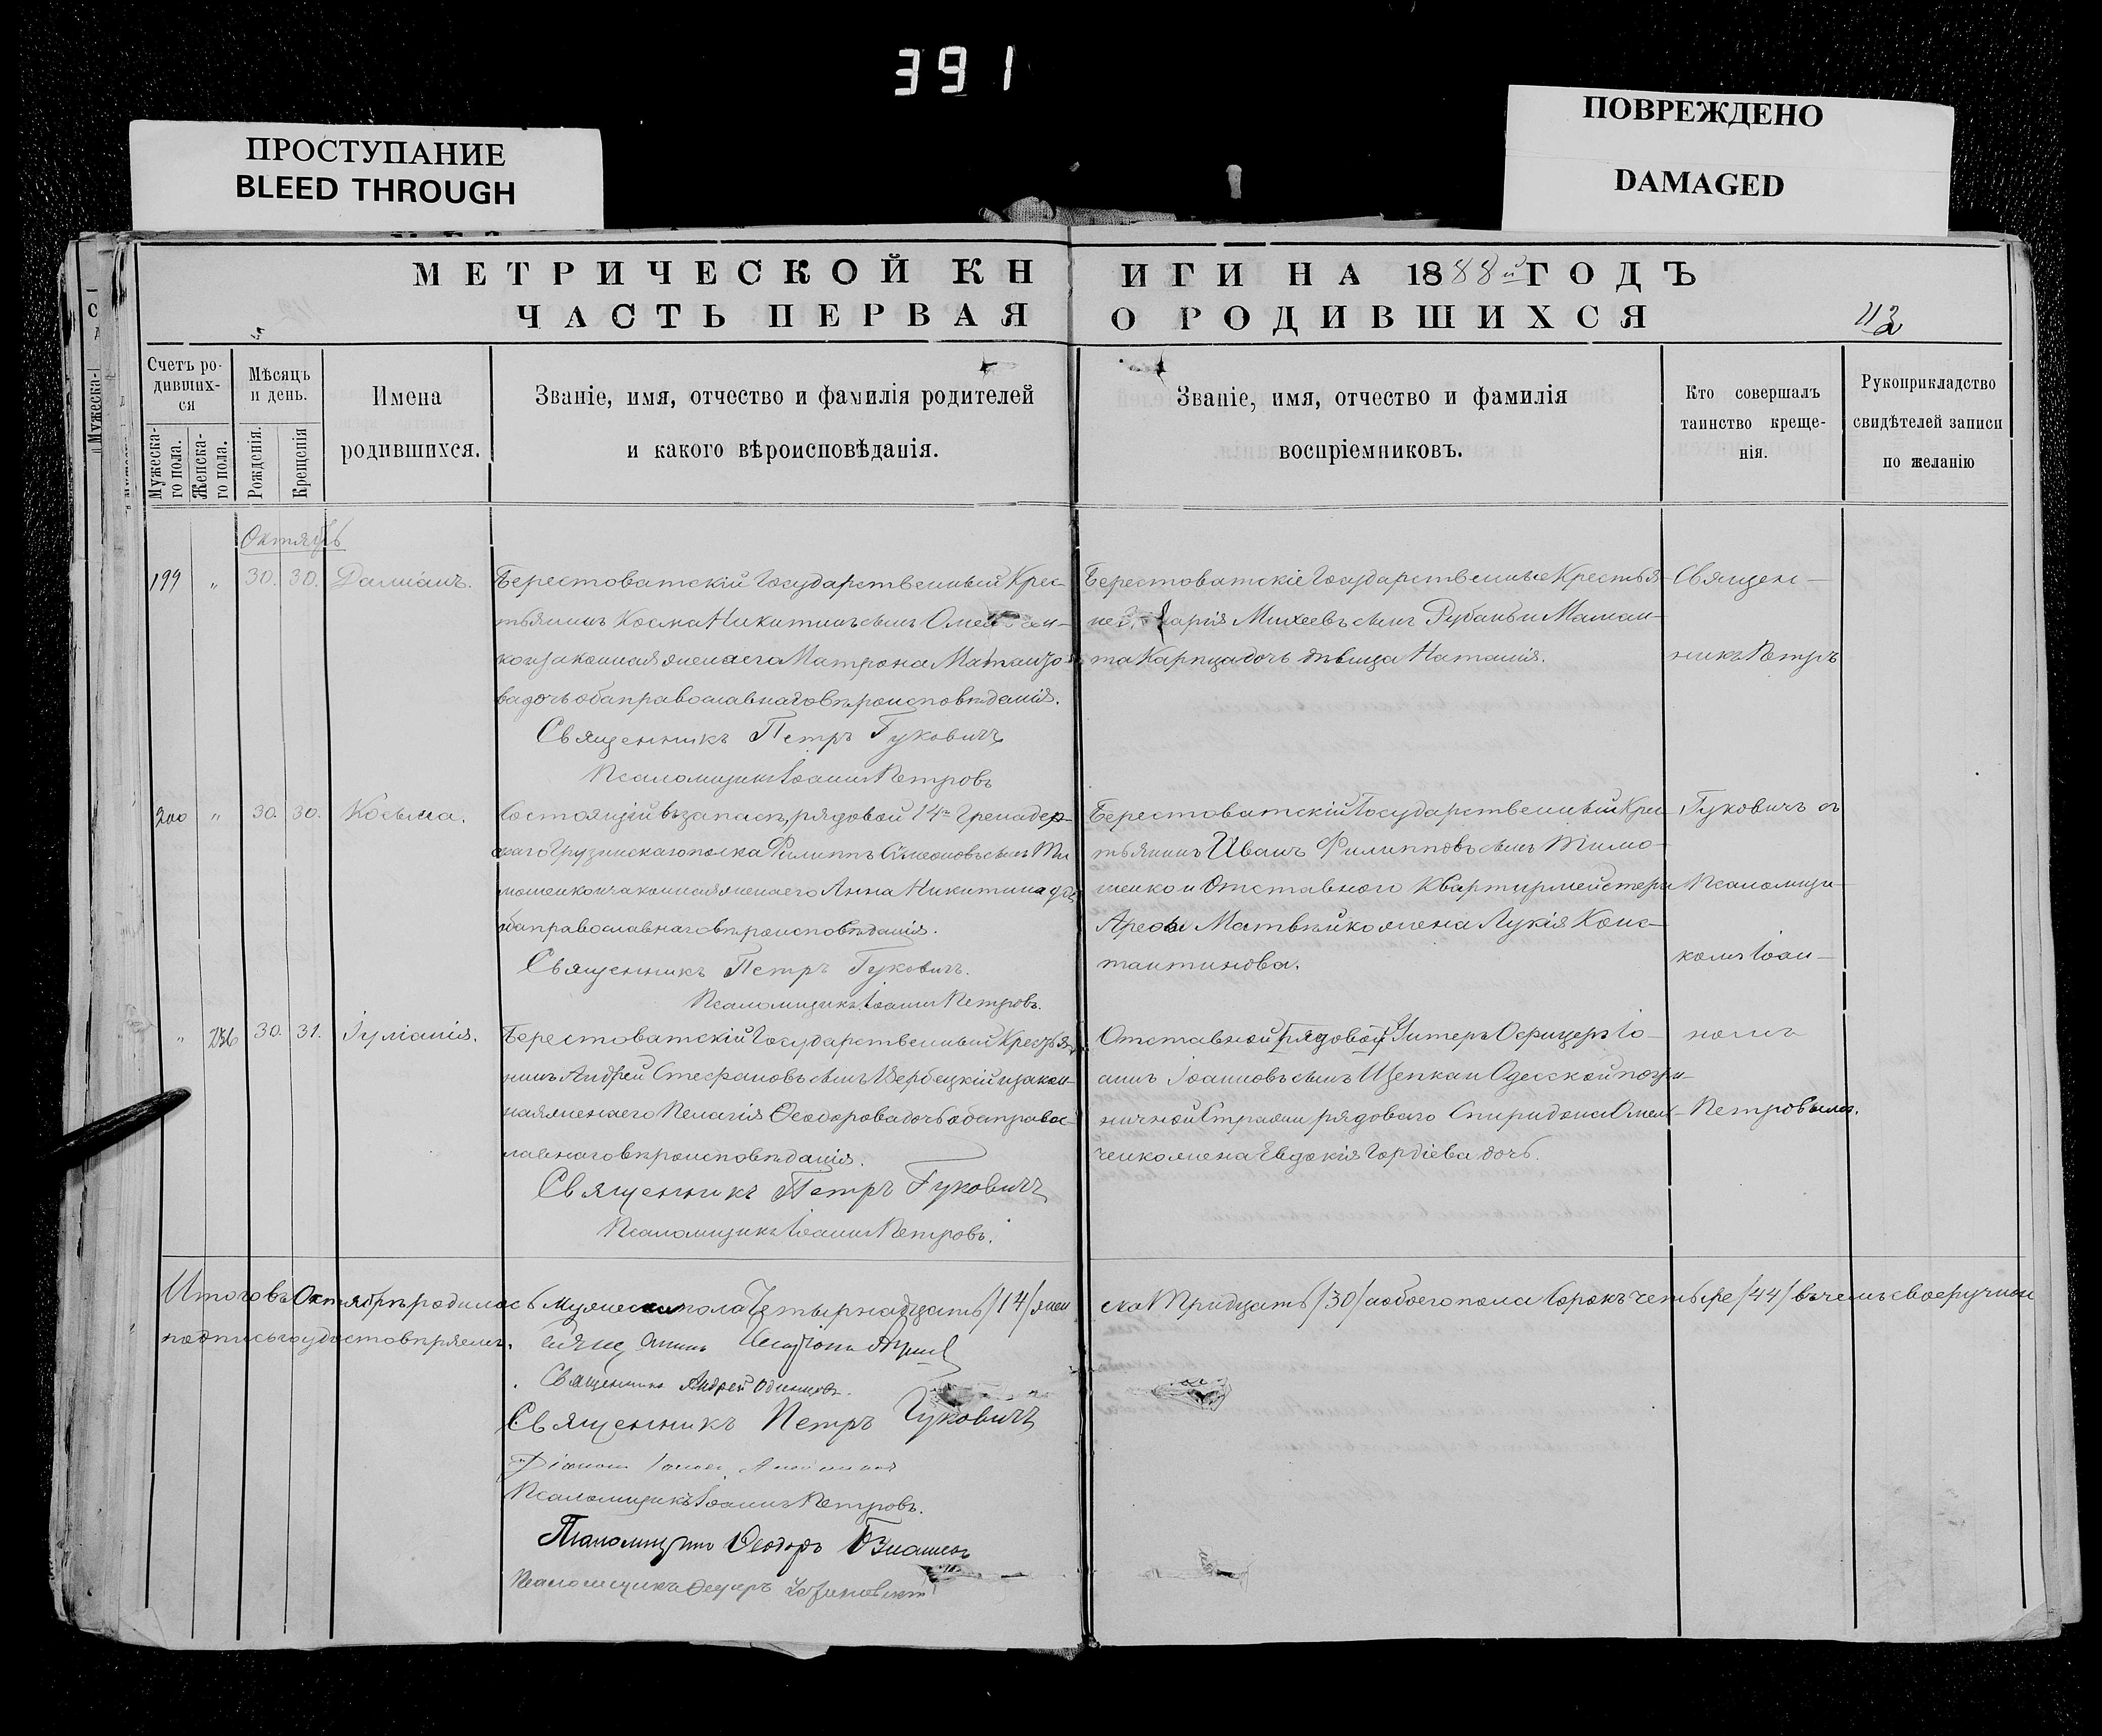 391
ПРОСТУПАНИЕ
BLEED THROUGH
ПОВРЕЖДЕНО
DAMAGED
МЕТРИЧЕСКОЙ КНИГИ НА 1888й ГОДЪ
ЧАСТЬ ПЕРВАЯ О РОДИВШИХСЯ
Счетъ ро-
дивших-
ся
Мужеска-
го пола.
Женска-
го пола.
Мѣсяцъ
и день.
Рожденія.
Крещенія
Имена
родившихся.
Званіе, имя, отчество и фамилія родителей
и какого вѣроисповѣданія.
Званіе, имя, отчество и фамилія
воспріемниковъ.
Кто совершалъ
таинство креще-
нія.
Рукоприкладство
свидѣтелей записи
по желанію
Октябрь
199 " 30. 30. Даміанъ.
Берестоватскій Государственный Крес-
тьянинъ Косма Никитинъ сынъ
ко и законная жена его Матрона
ва дочь оба православнаго вѣроисповѣданія.
Священникъ Петръ Гуковичъ
Псаломщикъ Іоаннъ Петровъ
Берестоватскіе Государственные Крестья-
не Михеевъ сынъ Рубанъ и
дочь дѣвица Наталія.
200 " 30. 30. Косьма.
Состоящій въ запасѣ, рядовой 14го Гренадер-
скаго Грузинскаго полка Филиппъ Симеоновъ сынъ Ти
мошенко и законная жена его Анна Никитина дочь
оба православнаго вѣроисповѣданія.
Священникъ Петръ Гуковичъ.
Псаломщикъ Іоаннъ Петровъ.
Берестоватскій Государственный Крес-
тьянинъ Иванъ Филипповъ сынъ Тимо-
шенко и Отставного Квартирмейстера
Матвѣйко жена Лукія Конс-
тантинова.
" 236 30. 31. Іуліанія.
Берестоватскій Государственный Крестья-
нинъ Андрей Стефановъ сынъ Вербецкій и закон-
ная жена его Пелагія Ѳеодорова дочь оба правос-
лавнаго вѣроисповѣданія.
Священникъ Петръ Гуковичъ
Псаломщикъ Іоаннъ Петровъ.
Отставной рядовой Унтеръ Офицеръ Іо-
аннъ Іоанновъ сынъ Щепка и Одесской погра-
ничной Стражи рядового Спиридона Омель-
ченко жена Евдокія Гордіева дочь.
Священ-
никъ Петръ
Гуковичъ съ
Псаломщи-
комъ Іоан-
номъ
Петровымъ.
Итого въ Октябрѣ родилось мужеска пола Четырнадцать /14/ жен
ска Тридцать /30/ а обоего пола Сорокъ четыре /44/ въ чемъ своеручною
подписью удостовѣряемъ.
Священникъ Андрей Одинцовъ.
Священникъ Петръ Гуковичъ
Псаломщикъ Іоаннъ Петровъ.
Псаломщикъ Ѳеодоръ
Псаломщикъ